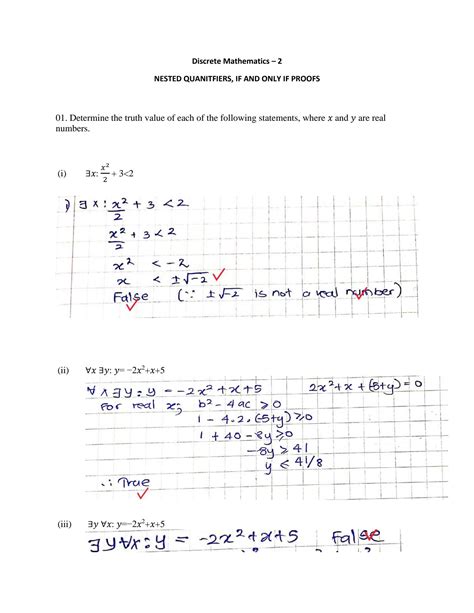 Discrete Mathematics – 2
NESTED QUANITFIERS, IF AND ONLY IF PROOFS
01. Determine the truth value of each of the following statements, where x and y are real
numbers.
(i) ∃x: x²/2 + 3<2
i) ∃ x : x²/2 + 3 < 2
x²/2 + 3 < 2
x² < -2
x < ±√-2
False (∵ ±√-2 is not a real number)
(ii) ∀x ∃y: y= −2x²+x+5
∀ x ∃ y : y = -2x² + x + 5 2x² + x + (5+y) = 0
For real x; b² - 4ac ≥ 0
1 - 4.2.(-5+y) ≥ 0
1 + 40 - 8y ≥ 0
-8y ≥ 41
y < 41/8
∴ True
(iii) ∃y ∀x: y=−2x²+x+5
∃ y ∀ x : y = -2x² + x + 5 False